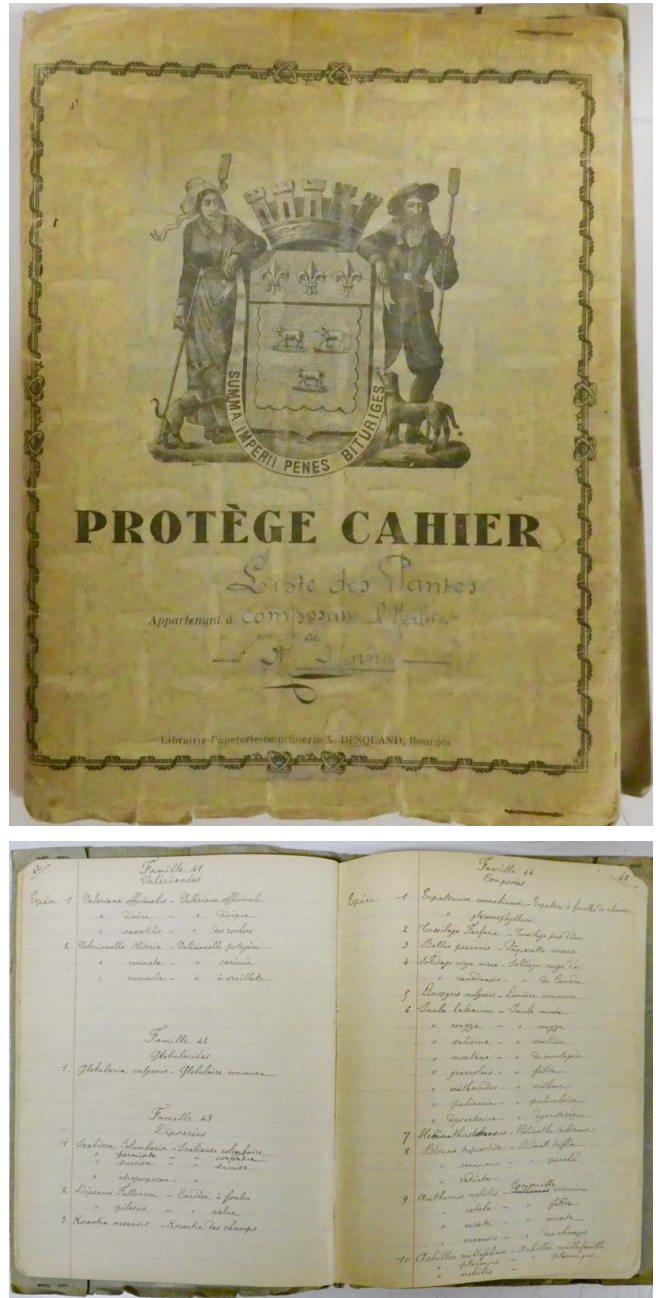 SUMMA IMPERII PENES BITURIGES
PROTÈGE CAHIER
Liste des Plantes
Appartenant à composant l'Herbier
de
Librairie-Papeterie-Imprimerie X. DESQUAND, Bourges
42
Famille 41
Valérianées
Espèce 1 Valeriana officinalis - Valériane officinale
" dioica - " dioïque
" saxatilis - " des rochers
2 Valerianella Olitoria - Valérianelle potagère
" carinata - " carénée
" auricula - " à oreillette
Famille 42
Globulariées
1 Globularia vulgaris - Globulaire commune
Famille 43
Dipsacées
1 Scabiosa Columbaria - Scabieuse colombaire
" succisa - " succise
" atropurpurea - "
2 Dipsacus Fullonum - Cardère à foulon
" pilosus - " velue
3 Knautia arvensis - Knautie des champs
43
Famille 44
Composées
Espèce 1 Eupatorium cannabinum - Eupatoire à feuilles de chanvre
"
2 Tussilago Farfara - Tussilage pas d'âne
3 Bellis perennis - Pâquerette vivace
4 Solidago virga aurea - Solidage verge d'or
" canadensis - " du Canada
5 Linosyris vulgaris - Linière commune
6 Inula helenium - Inule aunée
" conyza - " conyze
" salicina - " saulière
" montana - " de montagne
" graveolens - " fétide
" crithmoides - "
" pulicaria - " pulicaire
" dysenterica - " dysentérique
7 Helianthus
8 Bidens tripartita - Bident trifide
" cernua - " penché
" radiata
9 Anthemis nobilis - Camomille romaine
" cotula - " fétide
" mixta - " mixte
" arvensis - " des champs
10 Achillea millefolium - Achillée millefeuille
" ptarmica - " ptarmique
" nobilis - "